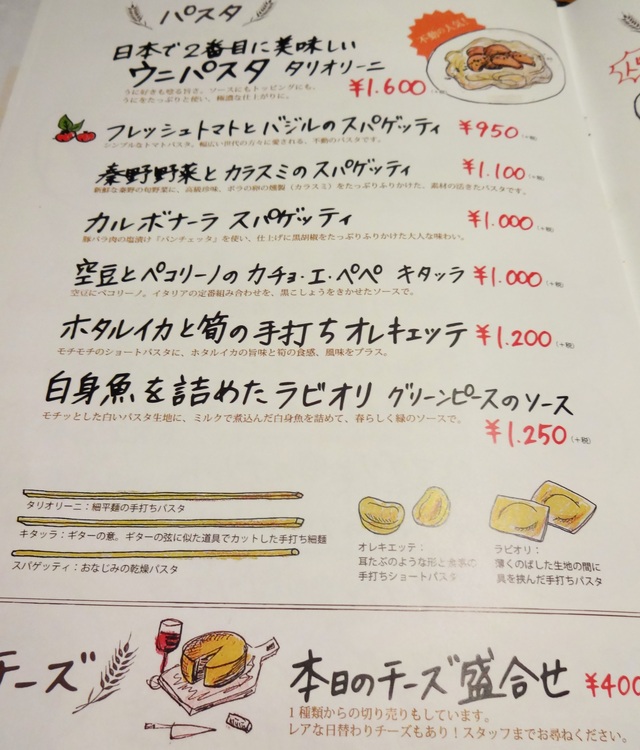 パスタ
不動の人気!
日本で2番目に美味しい
ウニパスタ タリオリーニ
うに好きも唸る旨さ。ソースにもトッピングにも、
うにをたっぷりと使い、極濃な仕上がりに。
¥1.600
フレッシュトマトとバジルのスパゲッティ ¥950 (+税)
シンプルなトマトパスタ。幅広い世代の方々に愛される、不動のパスタです。
秦野野菜とカラスミのスパゲッティ ¥1.100 (+税)
新鮮な秦野の旬野菜に、高級珍味、ボラの卵の燻製（カラスミ）をたっぷりふりかけた、素材の活きたパスタです。
カルボナーラ スパゲッティ ¥1.000 (+税)
豚バラ肉の塩漬け『パンチェッタ』を使い、仕上げに黒胡椒をたっぷりふりかけた大人な味わい。
空豆とペコリーノのカチョ・エ・ペペ キタッラ ¥1.000 (+税)
空豆にペコリーノ。イタリアの定番組み合わせを、黒こしょうをきかせたソースで。
ホタルイカと筍の手打ちオレキエッテ ¥1.200 (+税)
モチモチのショートパスタに、ホタルイカの旨味と筍の食感、風味をプラス。
白身魚を詰めたラビオリ グリーンピースのソース
モチッとした白いパスタ生地に、ミルクで煮込んだ白身魚を詰めて、春らしく緑のソースで。
¥1.250 (+税)
タリオリーニ：細平麺の手打ちパスタ
キタッラ：ギターの意。ギターの弦に似た道具でカットした手打ち細麺
スパゲッティ：おなじみの乾燥パスタ
オレキエッテ：
耳たぶのような形と食感の
手打ちショートパスタ
ラビオリ：
薄くのばした生地の間に
具を挟んだ手打ちパスタ
チーズ
本日のチーズ盛合せ ¥400
1種類からの切り売りもしています。
レアな日替わりチーズもあり！スタッフまでお尋ねください。